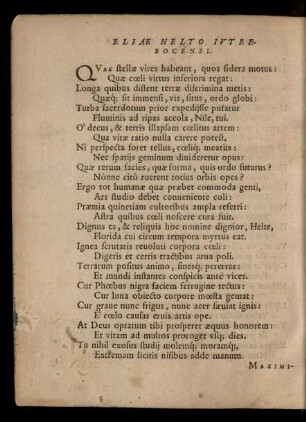 ELIAE HELTO IVTRE-
BOCENSI.
QVae stellæ vires habeant, quos sidera motus:
Quæ cœli virtus inferiora regat:
Longa quibus distent terræ discrimina metis:
Quæq; sit immensi, vis, situs, ordo globi:
Turba sacerdotum prior expedijsse putatur
Fluminis ad ripas accola, Nile, tui.
O' decus, & terris illapsam cœlitus artem:
Qua vitæ ratio nulla carere potest,
Ni perspecta foret tellus, cœliq; meatus:
Nec spatijs geminum diuideretur opus:
Quæ rerum facies, quæ forma, quis ordo futurus?
Nonne citò ruerent totius orbis opes?
Ergo tot humanæ quæ præbet commoda genti,
Ars studio debet conueniente coli:
Præmia quinetiam cultoribus ampla referri:
Astra quibus cœli noscere cura fuit.
Dignus es, & reliquis hoc nomine dignior, Helte,
Florida cui circum tempora myrtus eat.
Ignea scrutaris reuoluti corpora cœli:
Digeris et certis tractibus arua poli.
Terrarum positus animo, finesq; pererras:
Et mundi instantes conspicis antè vices.
Cur Phœbus nigra faciem ferrugine tectus:
Cur luna obiecto corpore mœsta gemat:
Cur graue nunc frigus, nunc acer sæuiat ignis:
E cœlo causas eruis artis ope.
At Deus optatum tibi prosperet æquus honorem:
Et vitam ad multos proroget vsq; dies.
Tu nihil exosus studij molemq; moramq;,
Extremam licitis nisibus adde manum.
MAXIMI-